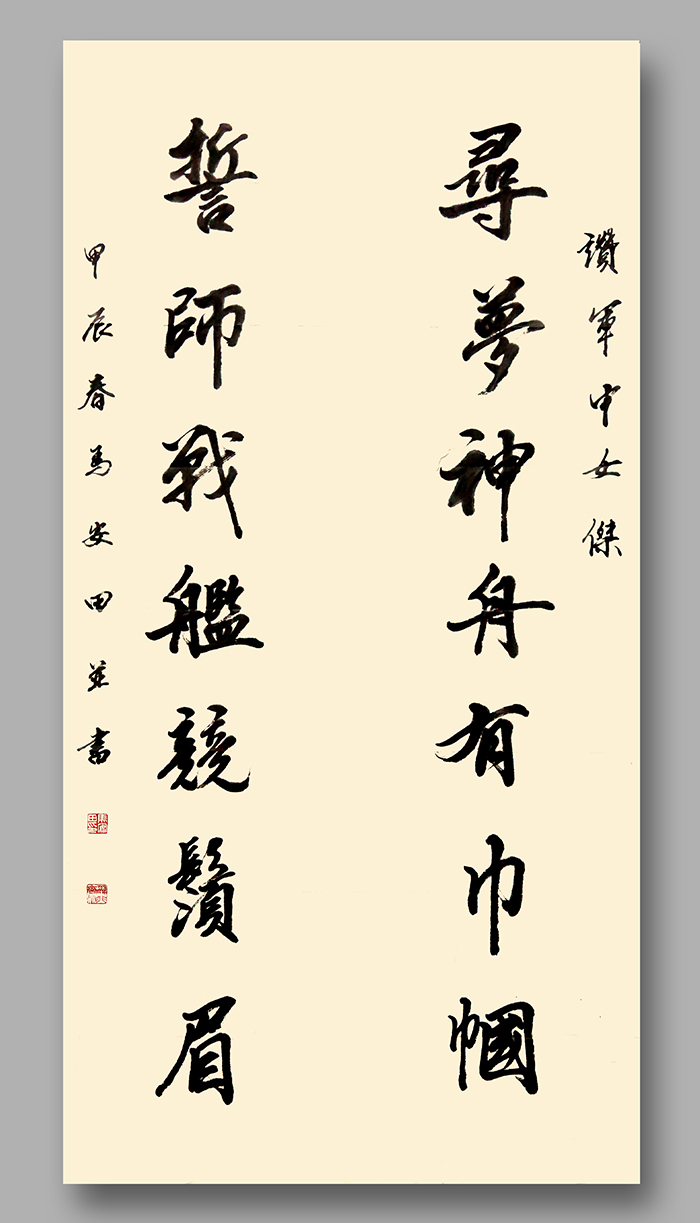 讚軍中女傑
尋夢神舟有巾幗
誓師戰艦競鬚眉
甲辰春馬安田並書